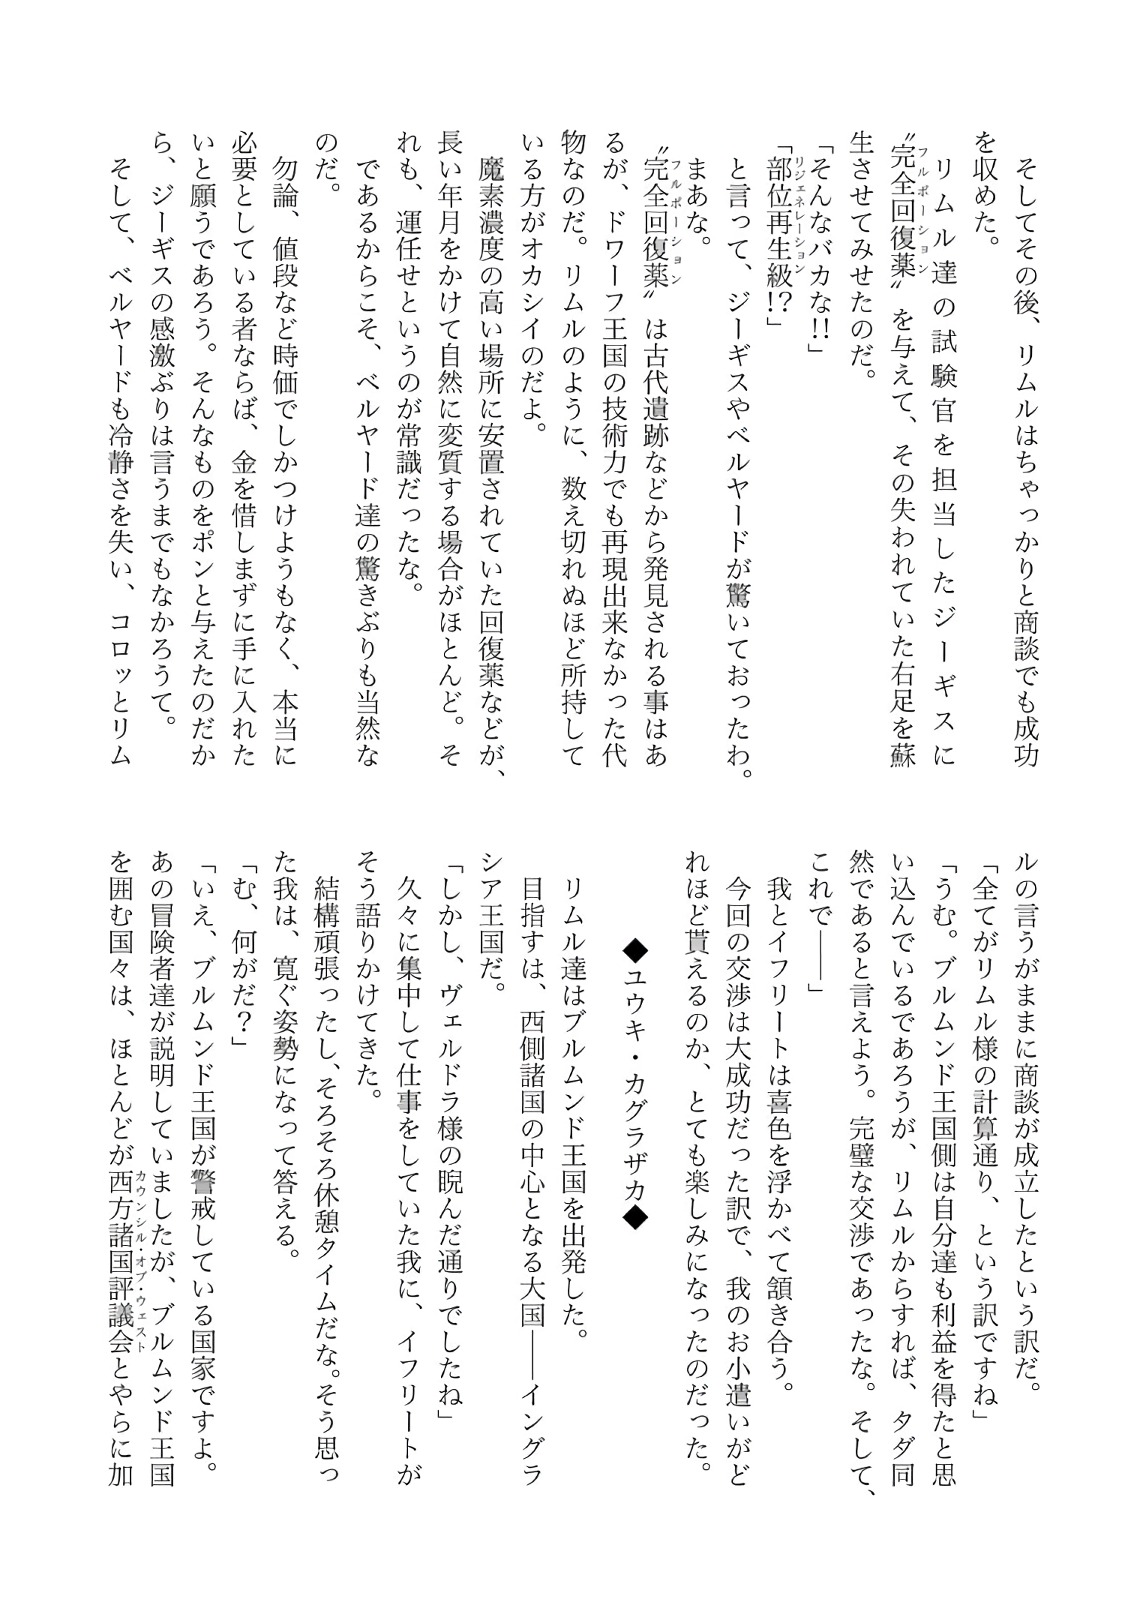 そしてその後、リムルはちゃっかりと商談でも成功
を収めた。
リムル達の試験官を担当したジーギスに
〝完全回復薬〟を与えて、その失われていた右足を蘇
フルポーション
生させてみせたのだ。
「そんなバカな!!」
「部位再生級!?」
リジェネレーション
と言って、ジーギスやベルヤードが驚いておったわ。
まあな。
〝完全回復薬〟は古代遺跡などから発見される事はあ
フルポーション
るが、ドワーフ王国の技術力でも再現出来なかった代
物なのだ。リムルのように、数え切れぬほど所持して
いる方がオカシイのだよ。
魔素濃度の高い場所に安置されていた回復薬などが、
長い年月をかけて自然に変質する場合がほとんど。そ
れも、運任せというのが常識だったな。
であるからこそ、ベルヤード達の驚きぶりも当然な
のだ。
勿論、値段など時価でしかつけようもなく、本当に
必要としている者ならば、金を惜しまずに手に入れた
いと願うであろう。そんなものをポンと与えたのだか
ら、ジーギスの感激ぶりは言うまでもなかろうて。
そして、ベルヤードも冷静さを失い、コロッとリム
ルの言うがままに商談が成立したという訳だ。
「全てがリムル様の計算通り、という訳ですね」
「うむ。ブルムンド王国側は自分達も利益を得たと思
い込んでいるであろうが、リムルからすれば、タダ同
然であると言えよう。完璧な交渉であったな。そして、
これで――」
我とイフリートは喜色を浮かべて頷き合う。
今回の交渉は大成功だった訳で、我のお小遣いがど
れほど貰えるのか、とても楽しみになったのだった。
◆ユウキ・カグラザカ◆
リムル達はブルムンド王国を出発した。
目指すは、西側諸国の中心となる大国――イングラ
シア王国だ。
「しかし、ヴェルドラ様の睨んだ通りでしたね」
久々に集中して仕事をしていた我に、イフリートが
そう語りかけてきた。
結構頑張ったし、そろそろ休憩タイムだな。そう思っ
た我は、寛ぐ姿勢になって答える。
「む、何がだ?」
「いえ、ブルムンド王国が警戒している国家ですよ。
あの冒険者達が説明していましたが、ブルムンド王国
を囲む国々は、ほとんどが西方諸国評議会とやらに加
カウンシル・オブ・ウェスト